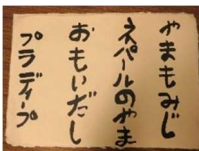 やまもみじ
ネパールのやま
おもいだし
プラディープ